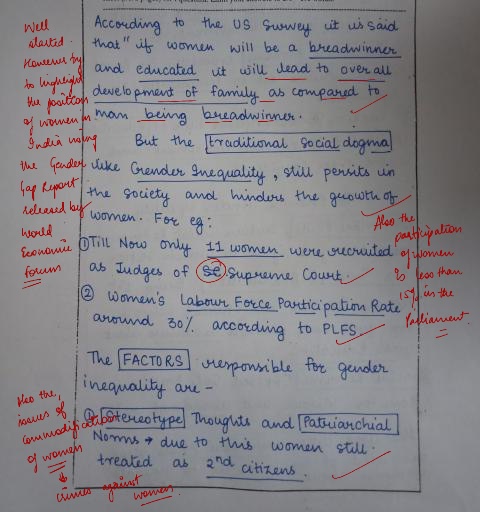 According to the US Survey it is said
that "if women will be a breadwinner
and educated it will lead to over all
development of family as compared to
man being breadwinner.
But the traditional social dogma
like Gender Inequality, still persits in
the society and hinders the growth of
women. For eg:
① Till Now only 11 women were recruited
as Judges of Supreme Court.
② Women's Labour Force Participation Rate
around 30% according to PLFS
The FACTORS responsible for gender
inequality are -
① Stereotype Thoughts and Patriarchial
Norms → due to this women still
treated as 2nd citizens.
Well
started.
However try
to highlight
the position
of women in
India using
the Gender
Gap Report
released by
World
Economic
forum
Also the
participation
of women
is less than
15% in the
Parliament.
Also the,
issues of
commodification
of women
↓
crimes against
women.